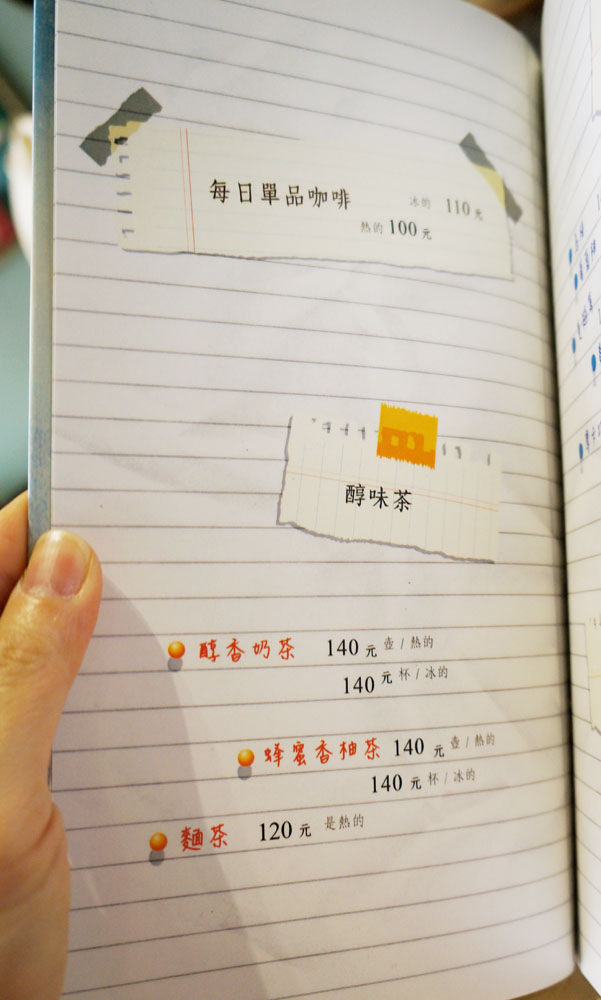 每日單品咖啡 冰的 110元
熱的 100元
醇味茶
醇香奶茶 140元 壺/熱的
140元 杯/冰的
蜂蜜香柚茶 140元 壺/熱的
140元 杯/冰的
麵茶 120元 是熱的